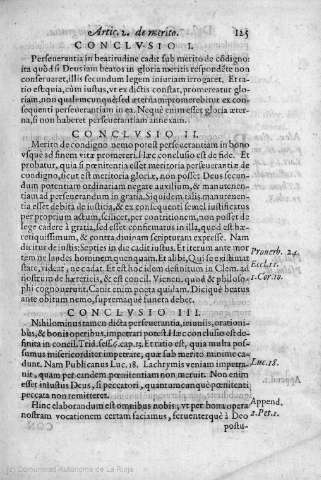 Artic. 2. de merito. 125
CONCLVSIO I.
Perseuerantia in beatitudine cadit sub merito de cōdigno:
ita quòd si Deus iam beatos in gloria meritis respondēte non
conseruaret, illis secundum legem iniuriam irrogaret. Et ra-
tio est: quia, cùm iustus, vt ex dictis constat, promereatur glo-
riam, non qualemcunq; sed æternam promerebitur ex con-
sequenti perseuerantiam in ea. Neque enim esset gloria æter-
na, si non haberet perseuerantiam annexam.
CONCLVSIO II.
Merito de condigno nemo potest perseuerantiam in bono
vsque ad finem vitæ promereri. Hæc conclusio est de fide. Et
probatur, quia si pœnitenti esset meritoria perseuerantia de
condigno, sicut est meritoria gloriæ, non posset Deus secun-
dum potentiam ordinariam negare auxilium, & manutenen-
tiam ad perseuerandum in gratia. Siquidem talis manutenen-
tia esset debita de iustitia, & ex consequenti semel iustificatus
per proprium actum, scilicet, per contritionem, non posset de
lege cadere à gratia, sed esset confirmatus in illa, quod est hæ-
reticissimum, & contra diuinam scripturam expresse. Nam
dicitur de iustis: Septies in die cadit iustus. Et iterum: ante mor
tem ne laudes hominem quenquam. Et alibi, Qui se existimat
stare, videat, ne cadat. Et est hoc idem definitum in Clem. ad
nostrum de hæreticis, & est concil. Vienen. quod & philoso-
phi cognouerunt. Canit enim poeta quidam, Dicique beatus
ante obitum nemo, supremaque funera debet.
Prouerb. 24.
Eccl. 11.
1. Cor. 10.
CONCLVSIO III.
Nihilominus tamen dicta perseuerantia, ieiuniis, orationi-
bus, & bonis operibus, impetrari potest. Hæc conclusio est de-
finita in concil. Trid. sess. 6. cap. 13. Et ratio est, quia multa pos-
sumus misericorditer impetrare, quæ sub merito minime ca-
dunt. Nam Publicanus Luc. 18. Lachrymis veniam impetra-
uit, quam per eandem pœnitentiam non meruit. Non enim
esset iniustus Deus, si peccatori, quantumcunque pœnitenti
peccata non remitteret.
Luc. 18.
Hinc elaborandum est omnibus nobis, vt per bona opera
nostram vocationem certam faciamus, seruenterque à Deo
postu-
Append.
2. Pet. 1.
(c) Comunidad Autónoma de La Rioja